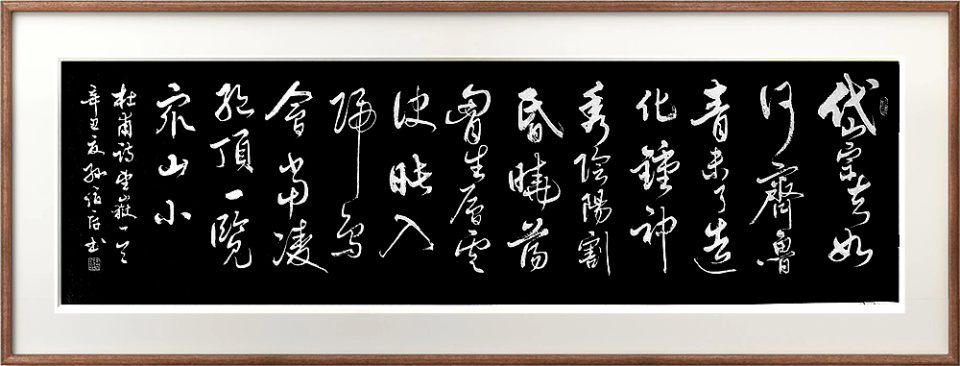 岱宗夫如
何齊魯
青未了造
化鍾神
秀陰陽割
昏曉蕩
胷生層雲
決眥入
歸鳥
會當凌
絕頂一覽
眾山小
杜甫詩望嶽一首
辛丑夏孫書